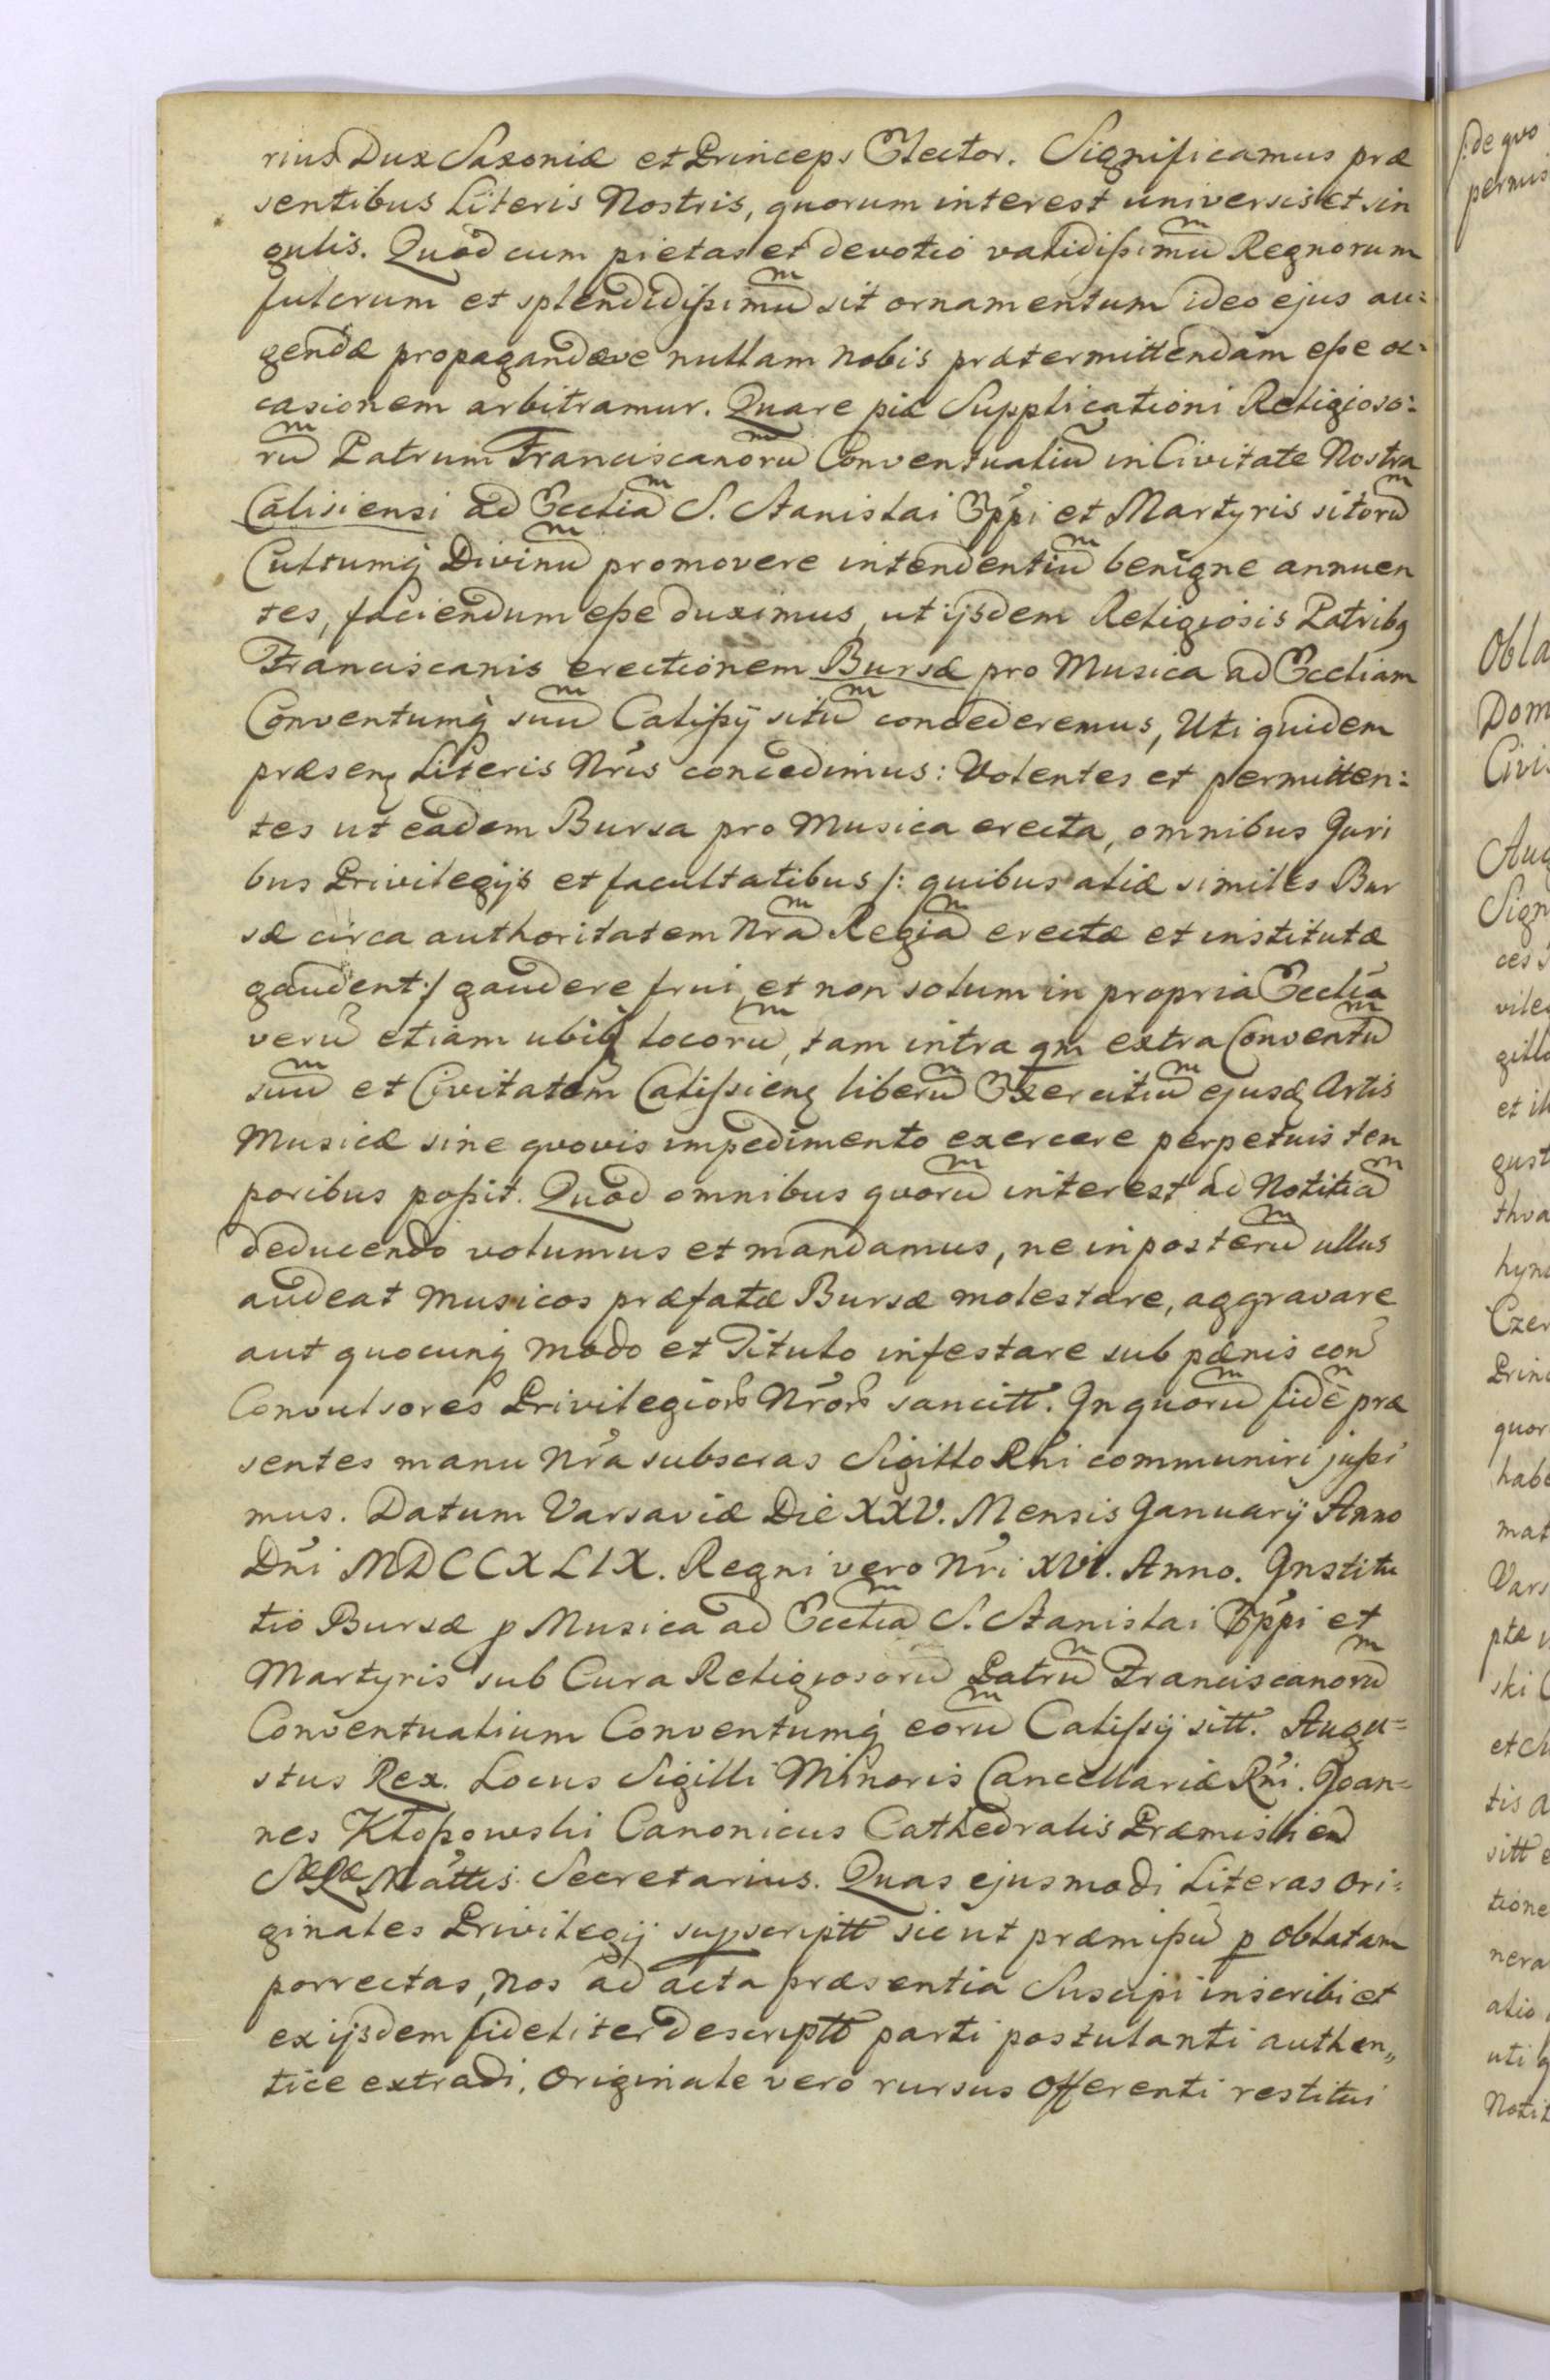 rius Dux Saxoniæ et Princeps Elector. Significamus præ
sentibus Literis Nostris, quorum interest universis et sin
gulis. Quod cum pietas et devotio validissimũ Regnorum
fulcrum et splendidissimũ sit ornamentum ideo ejus au=
gendæ propagandæve nullam nobis prætermittendam esse oc=
casionem arbitramur. Quare piæ Supplicationi Religioso=
rũ Patrum Franciscanorũ Conventualiũ in Civitate Nostra
Calisiensi ad Eccliã S. Stanislai Eppi et Martyris sitorũ
Cultumq Divinũ promovere intendentiũ benigne annuen
tes, faciendum esse duximus, ut ijsdem Religiosis Patribq
Franciscanis erectionem Bursæ pro Musica ad Eccliam
Conventumq suũ Calissij sitũ concederemus, Uti quidem
præsenz Literis Nris concedimus: Volentes et permitten=
tes ut eadem Bursa pro Musica erecta, omnibus Juri
bus Privilegijs et facultatibus /: quibus aliæ similes Bur
sæ circa authoritatem Nrã Regiã erectæ et institutæ
gaudent :/ gaudere frui, et non solum in propria Ecclia
verũ etiam ubiq locorũ, tam intra qm extra Conventũ
suũ et Civitatem Calissienz liberũ Exercitiũ ejusdz Artis
Musicæ sine quovis impedimento exercere perpetuis tem
poribus possit. Quod omnibus quorũ interest ad Notitiã
deducendo volumus et mandamus, ne in posterũ ullus
audeat Musicos præfatæ Bursæ molestare, aggravare
aut quocunq modo et Titulo infestare sub pænis con
Convulsores Privilegior Nror sancitt. In quorũ fidẽ præ
sentes manu Nra subscras Sigillo Rni communiri jussi
mus. Datum Varsaviæ Die XXV. Mensis Januarij Anno
Dni MDCCXLIX. Regni vero Nri XVI. Anno. Institu
tio Bursæ p Musica ad Ecclã S. Stanislai Eppi et
Martyris sub Cura Religiosorũ Patrũ Franciscanorũ
Conventualium Conventumq eorũ Calissij sitt. Augu=
stus Rex. Locus Sigilli Minoris Cancellariæ Rni. Joan=
nes Kłopowski Canonicus Cathedralis Præmislien
Mattis Secretarius. Quas ejusmodi Literas Ori=
ginales Privilegij supscriptt sicut præmissũ p Oblatam
porrectas, Nos ad acta præsentia Suscipi inscribi et
ex ijsdem fideliter descriptt parti postulanti authen„
tice extradi, Originale vero rursus Offerenti restitui